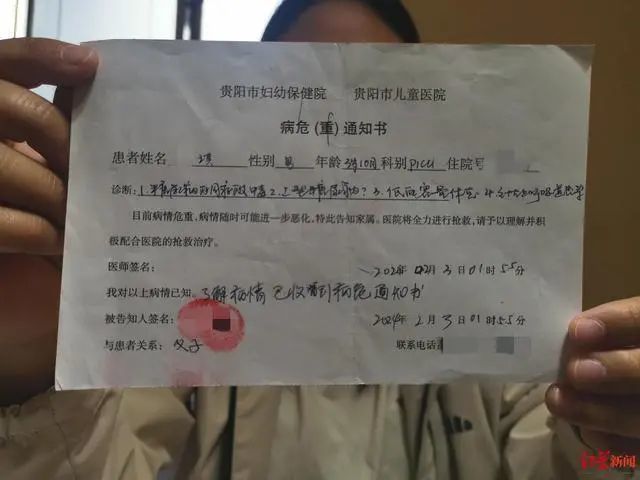 贵阳市妇幼保健院 贵阳市儿童医院
病危(重)通知书
患者姓名 琪 性别 男 年龄 3月10月 科别 PICU 住院号
诊断: 1. 2. 3. 低血容量休克
目前病情危重,病情随时可能进一步恶化,特此告知家属。医院将全力进行抢救,请予以理解并积
极配合医院的抢救治疗。
医师签名: 2024年 02月 3日 01时 55分
我对以上病情已知: 了解病情 已收到病危通知书
被告知人签名: 2024年 2月 3日 01时 55分
与患者关系: 父子 联系电话
红星新闻